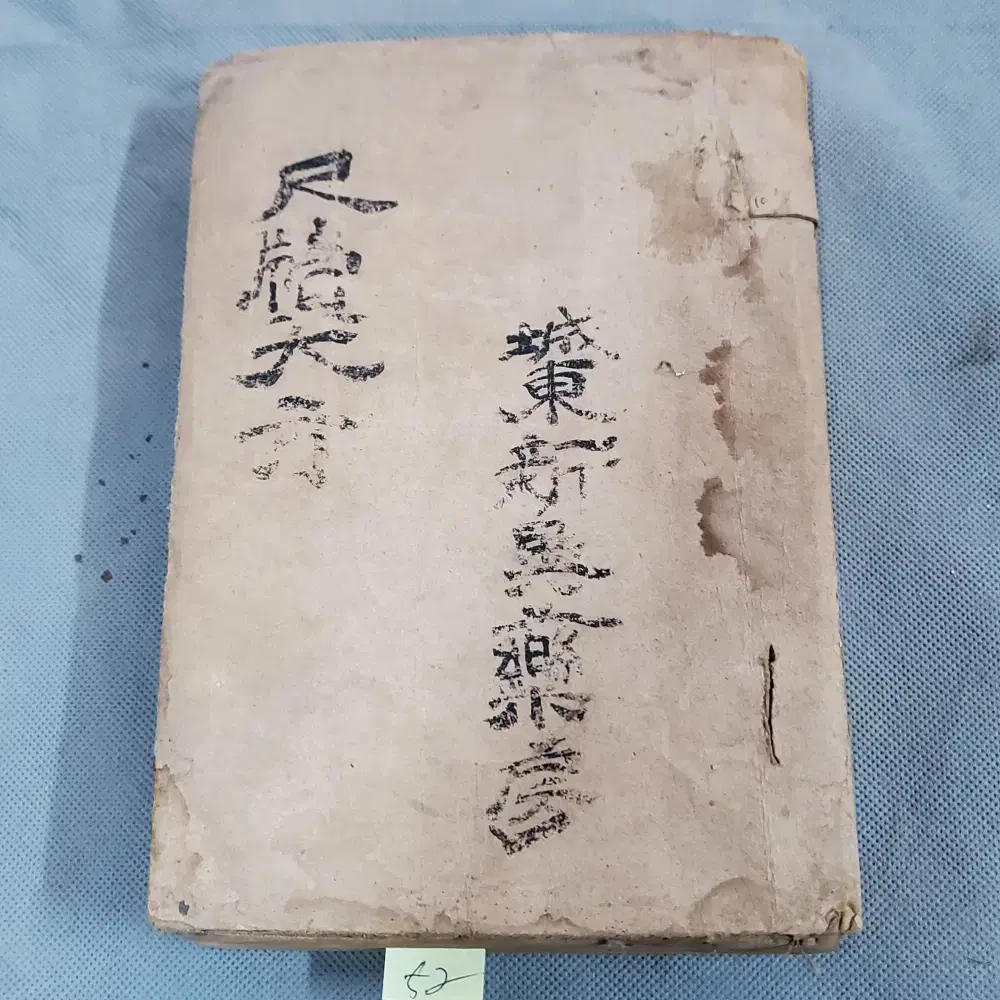 城東新興藥房
尺牘大方
52